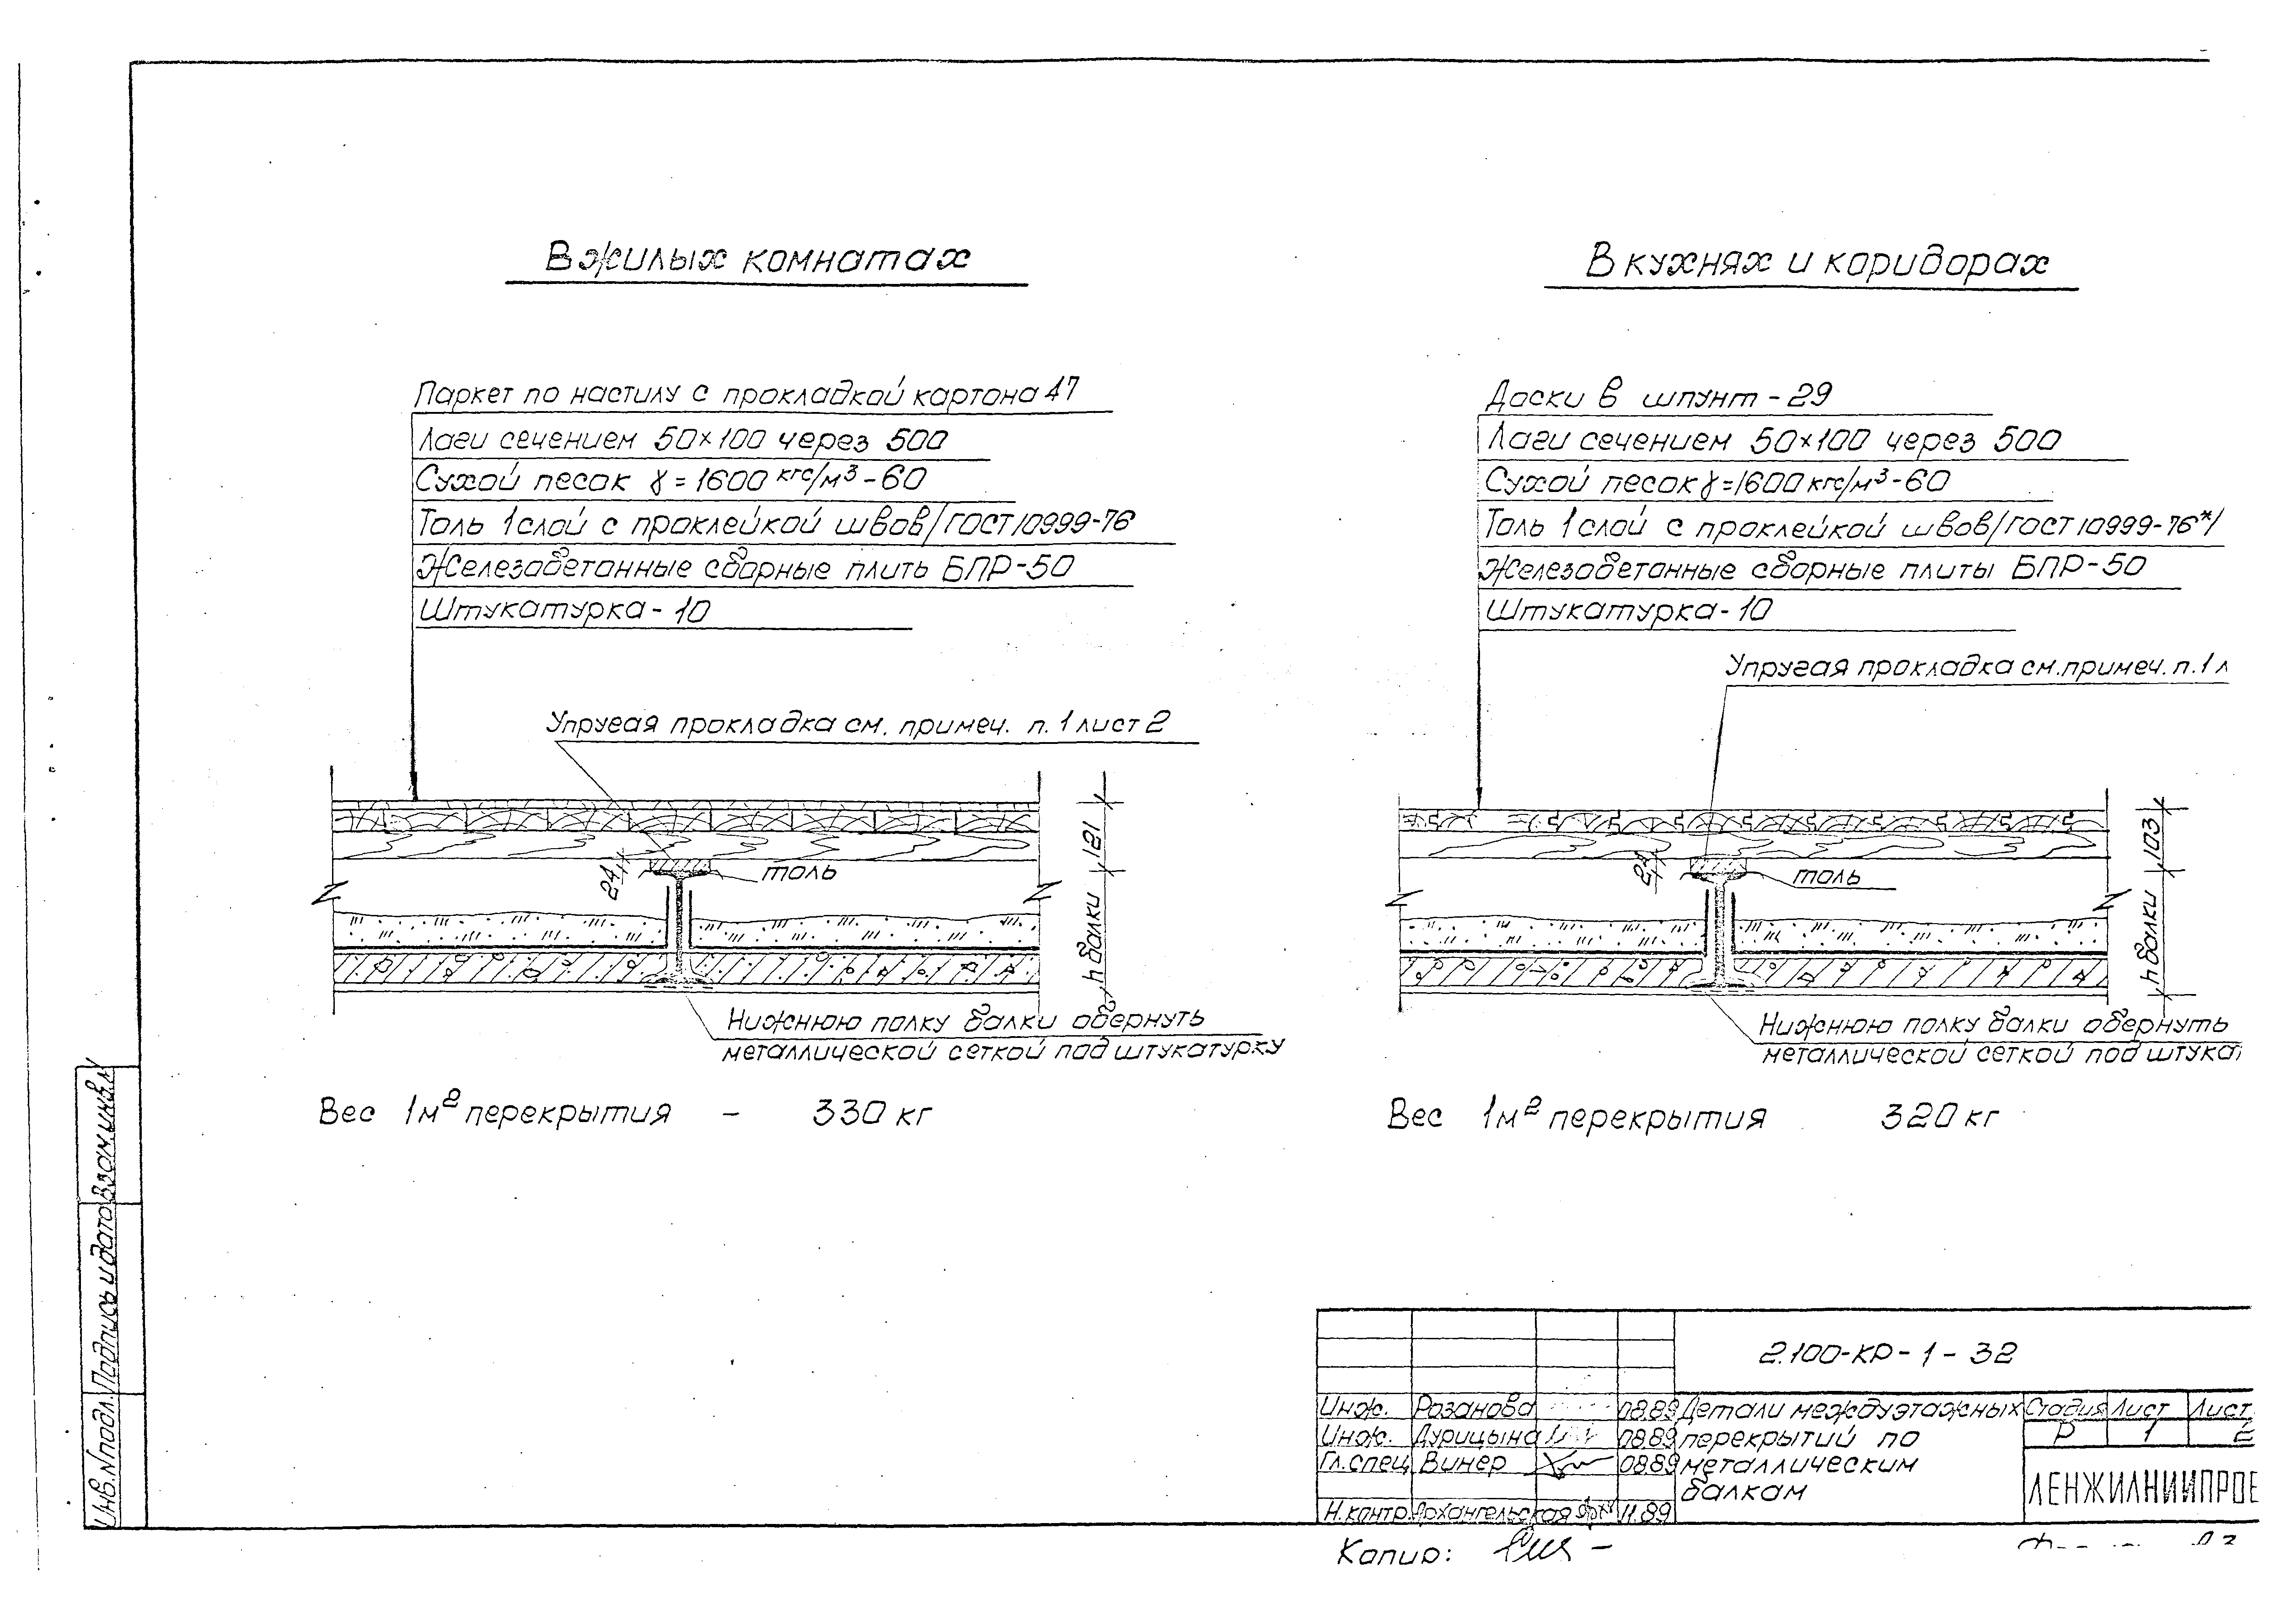 В жилых комнатах
Паркет по настилу с прокладкой картона 47
Лаги сечением 50×100 через 500
Сухой песок γ = 1600 кгс/м³ - 60
Толь 1 слой с проклейкой швов /ГОСТ 10999-76
Железобетонные сборные плить БПР-50
Штукатурка - 10
Упругая прокладка см. примеч. п. 1 лист 2
24
толь
121
h балки
Нижнюю полку балки обернуть
металлической сеткой под штукатурку
Вес 1м² перекрытия - 330 кг
В кухнях и коридорах
Доски в шпунт - 29
Лаги сечением 50×100 через 500
Сухой песок γ = 1600 кгс/м³ - 60
Толь 1 слой с проклейкой швов /ГОСТ 10999-76*/
Железобетонные сборные плиты БПР-50
Штукатурка - 10
Упругая прокладка см. примеч. п. 1 л
24
толь
103
h балки
Нижнюю полку балки обернуть
металлической сеткой под штука
Вес 1м² перекрытия 320 кг
Взам.инв.N
Подпись и дата
Инв.N подл.
2.100-КР-1-32
Инж. Розанова 08.89
Инж. Дурицына 08.89
Гл.спец. Винер 08.89
Н.контр. Архангельская 11.89
Детали междуэтажных
перекрытий по
металлическим
балкам
Стадия Лист Лист
Р 1 2
ЛЕНЖИЛНИИПРОЕ
Копир: